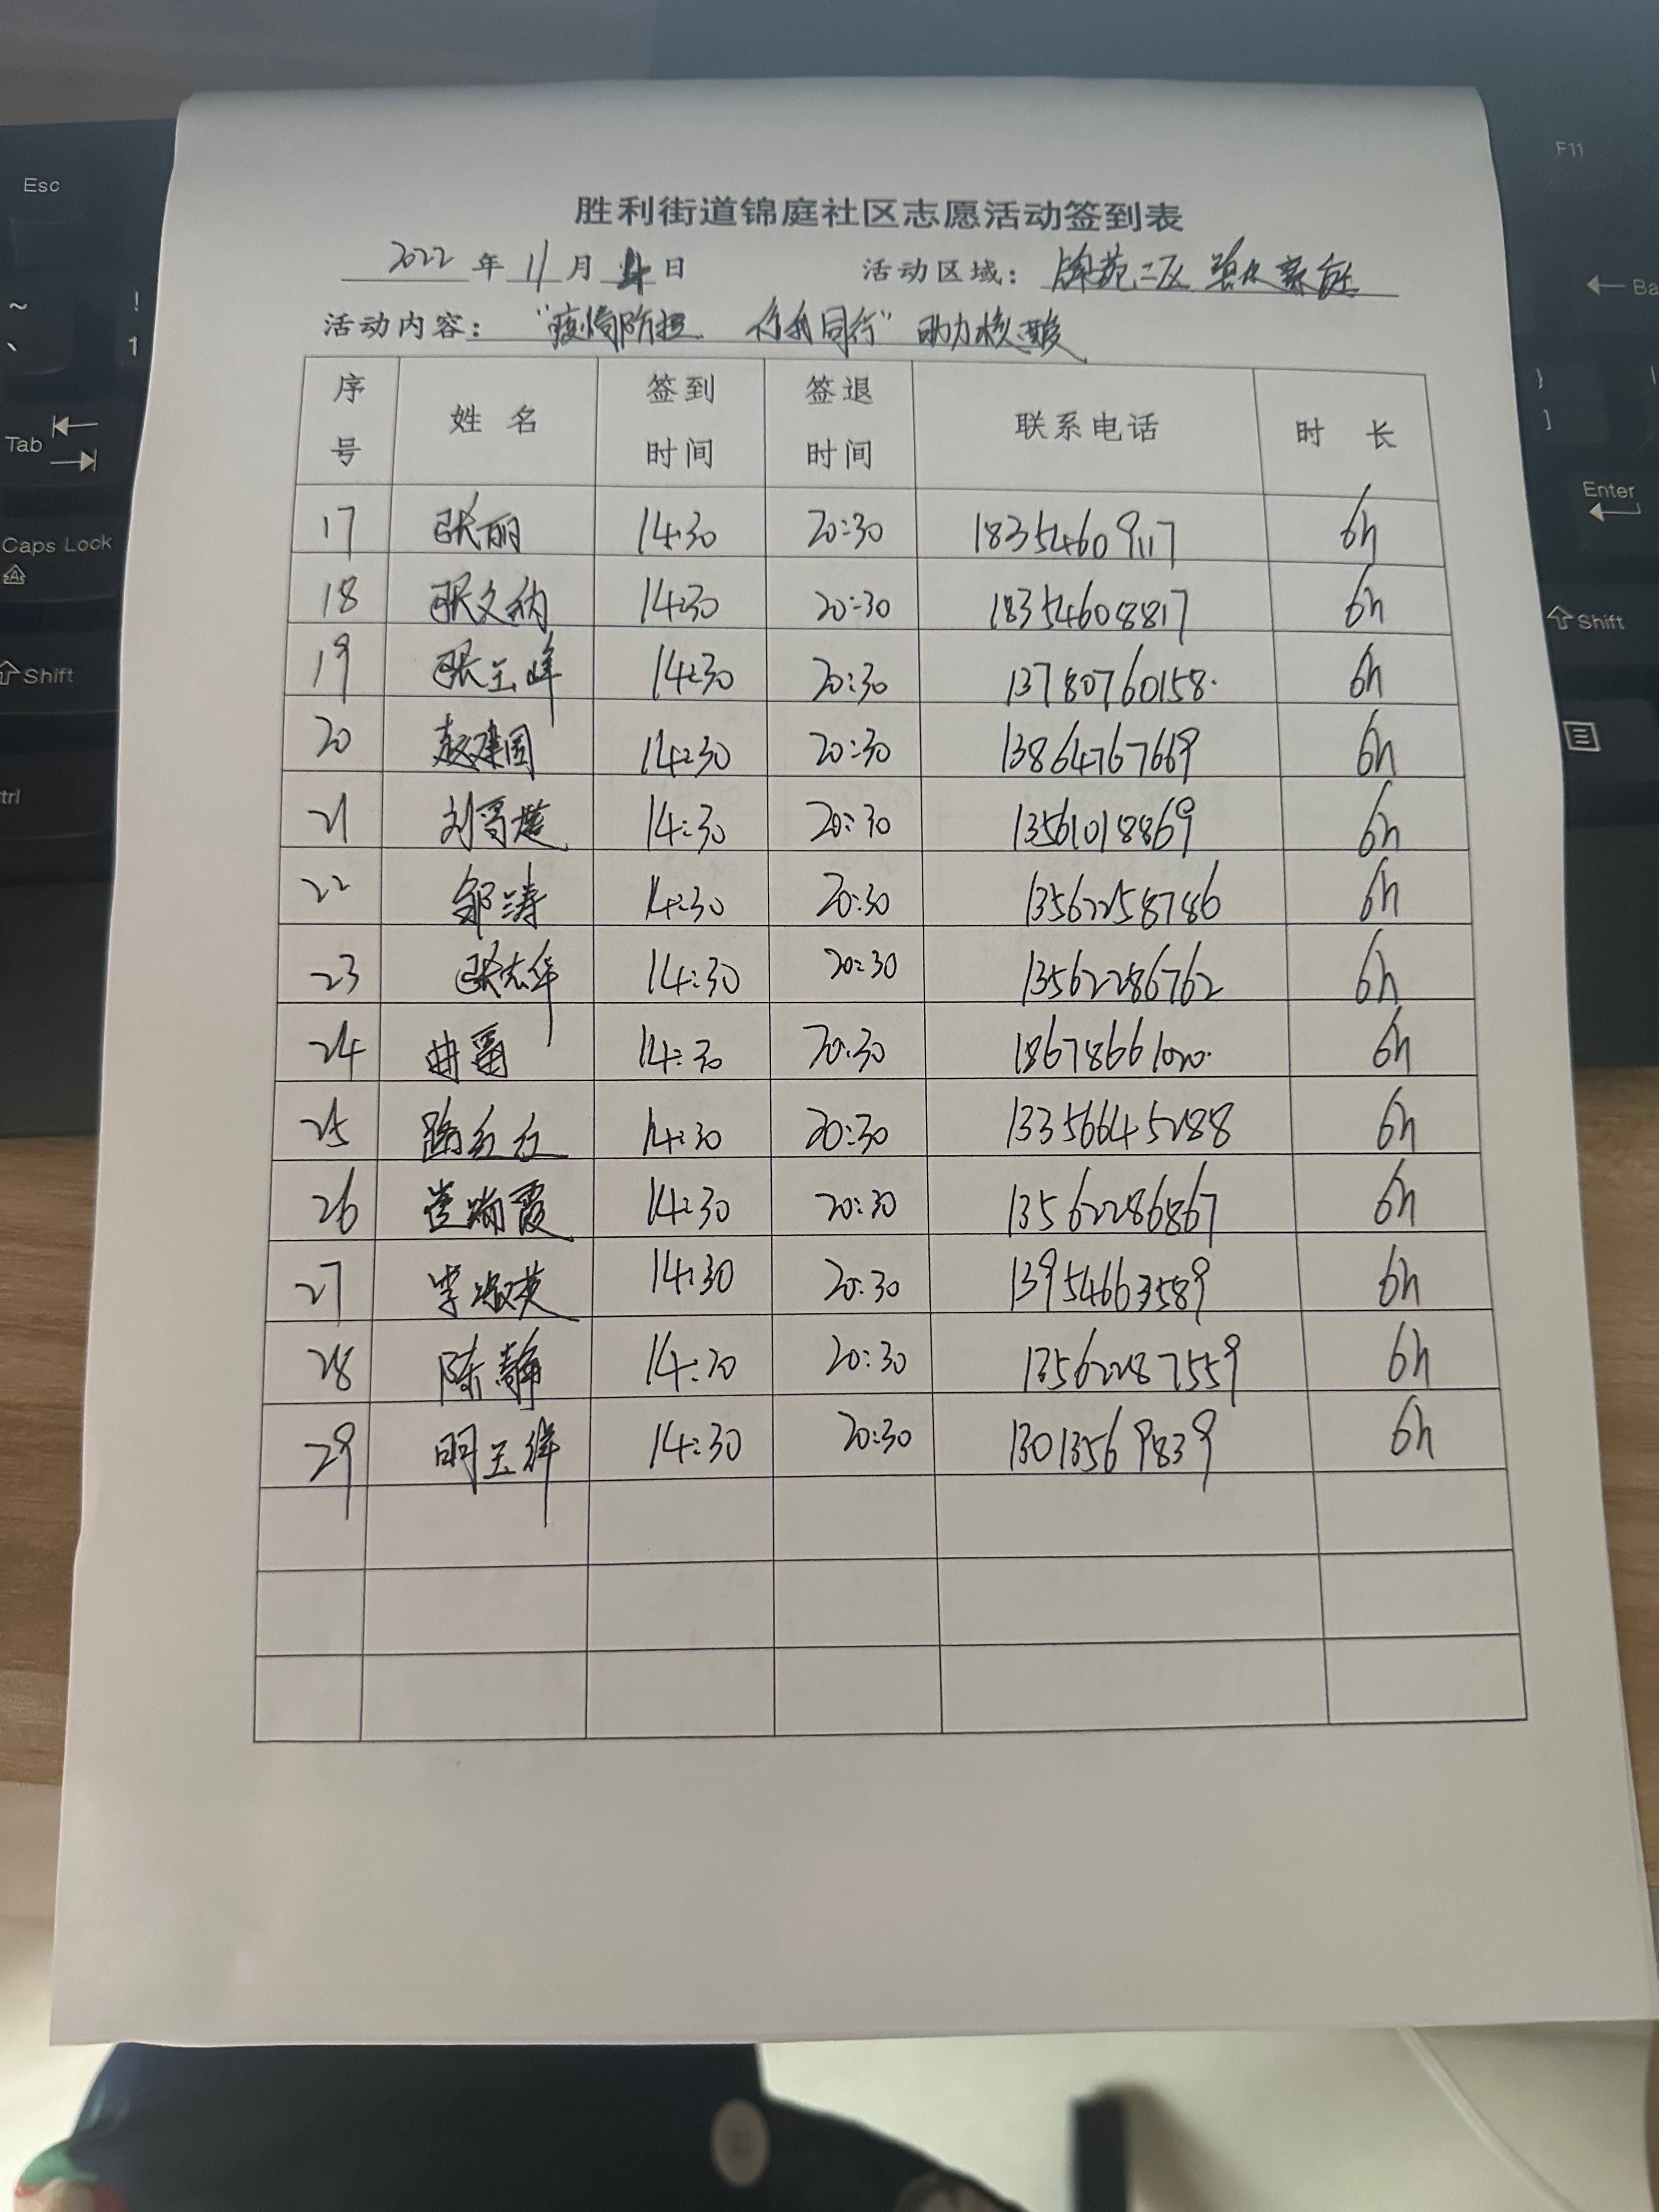 胜利街道锦庭社区志愿活动签到表
2022 年 11 月 4 日 活动区域: 锦苑二区
活动内容: "疫情防控 你我同行" 助力核酸
序号 姓名 签到时间 签退时间 联系电话 时长
17 张丽 14:30 20:30 18354609117 6h
18 张文纳 14:30 20:30 18354608817 6h
19 张玉峰 14:30 20:30 13780760158. 6h
20 赵建国 14:30 20:30 13864767669 6h
21 刘 14:30 20:30 13561018869 6h
22 邹涛 14:30 20:30 13562258786 6h
23 张志华 14:30 20:30 13562286762 6h
24 14:30 20:30 18678661020. 6h
25 路红红 14:30 20:30 13356645288 6h
26 崔瑞霞 14:30 20:30 13562286867 6h
27 李淑英 14:30 20:30 13954663589 6h
28 陈静 14:30 20:30 13562287559 6h
29 明玉祥 14:30 20:30 13013569839 6h
Esc
~
、
!
1
Tab
Caps Lock
A
Shift
trl
F11
Ba
}
]
Enter
Shift